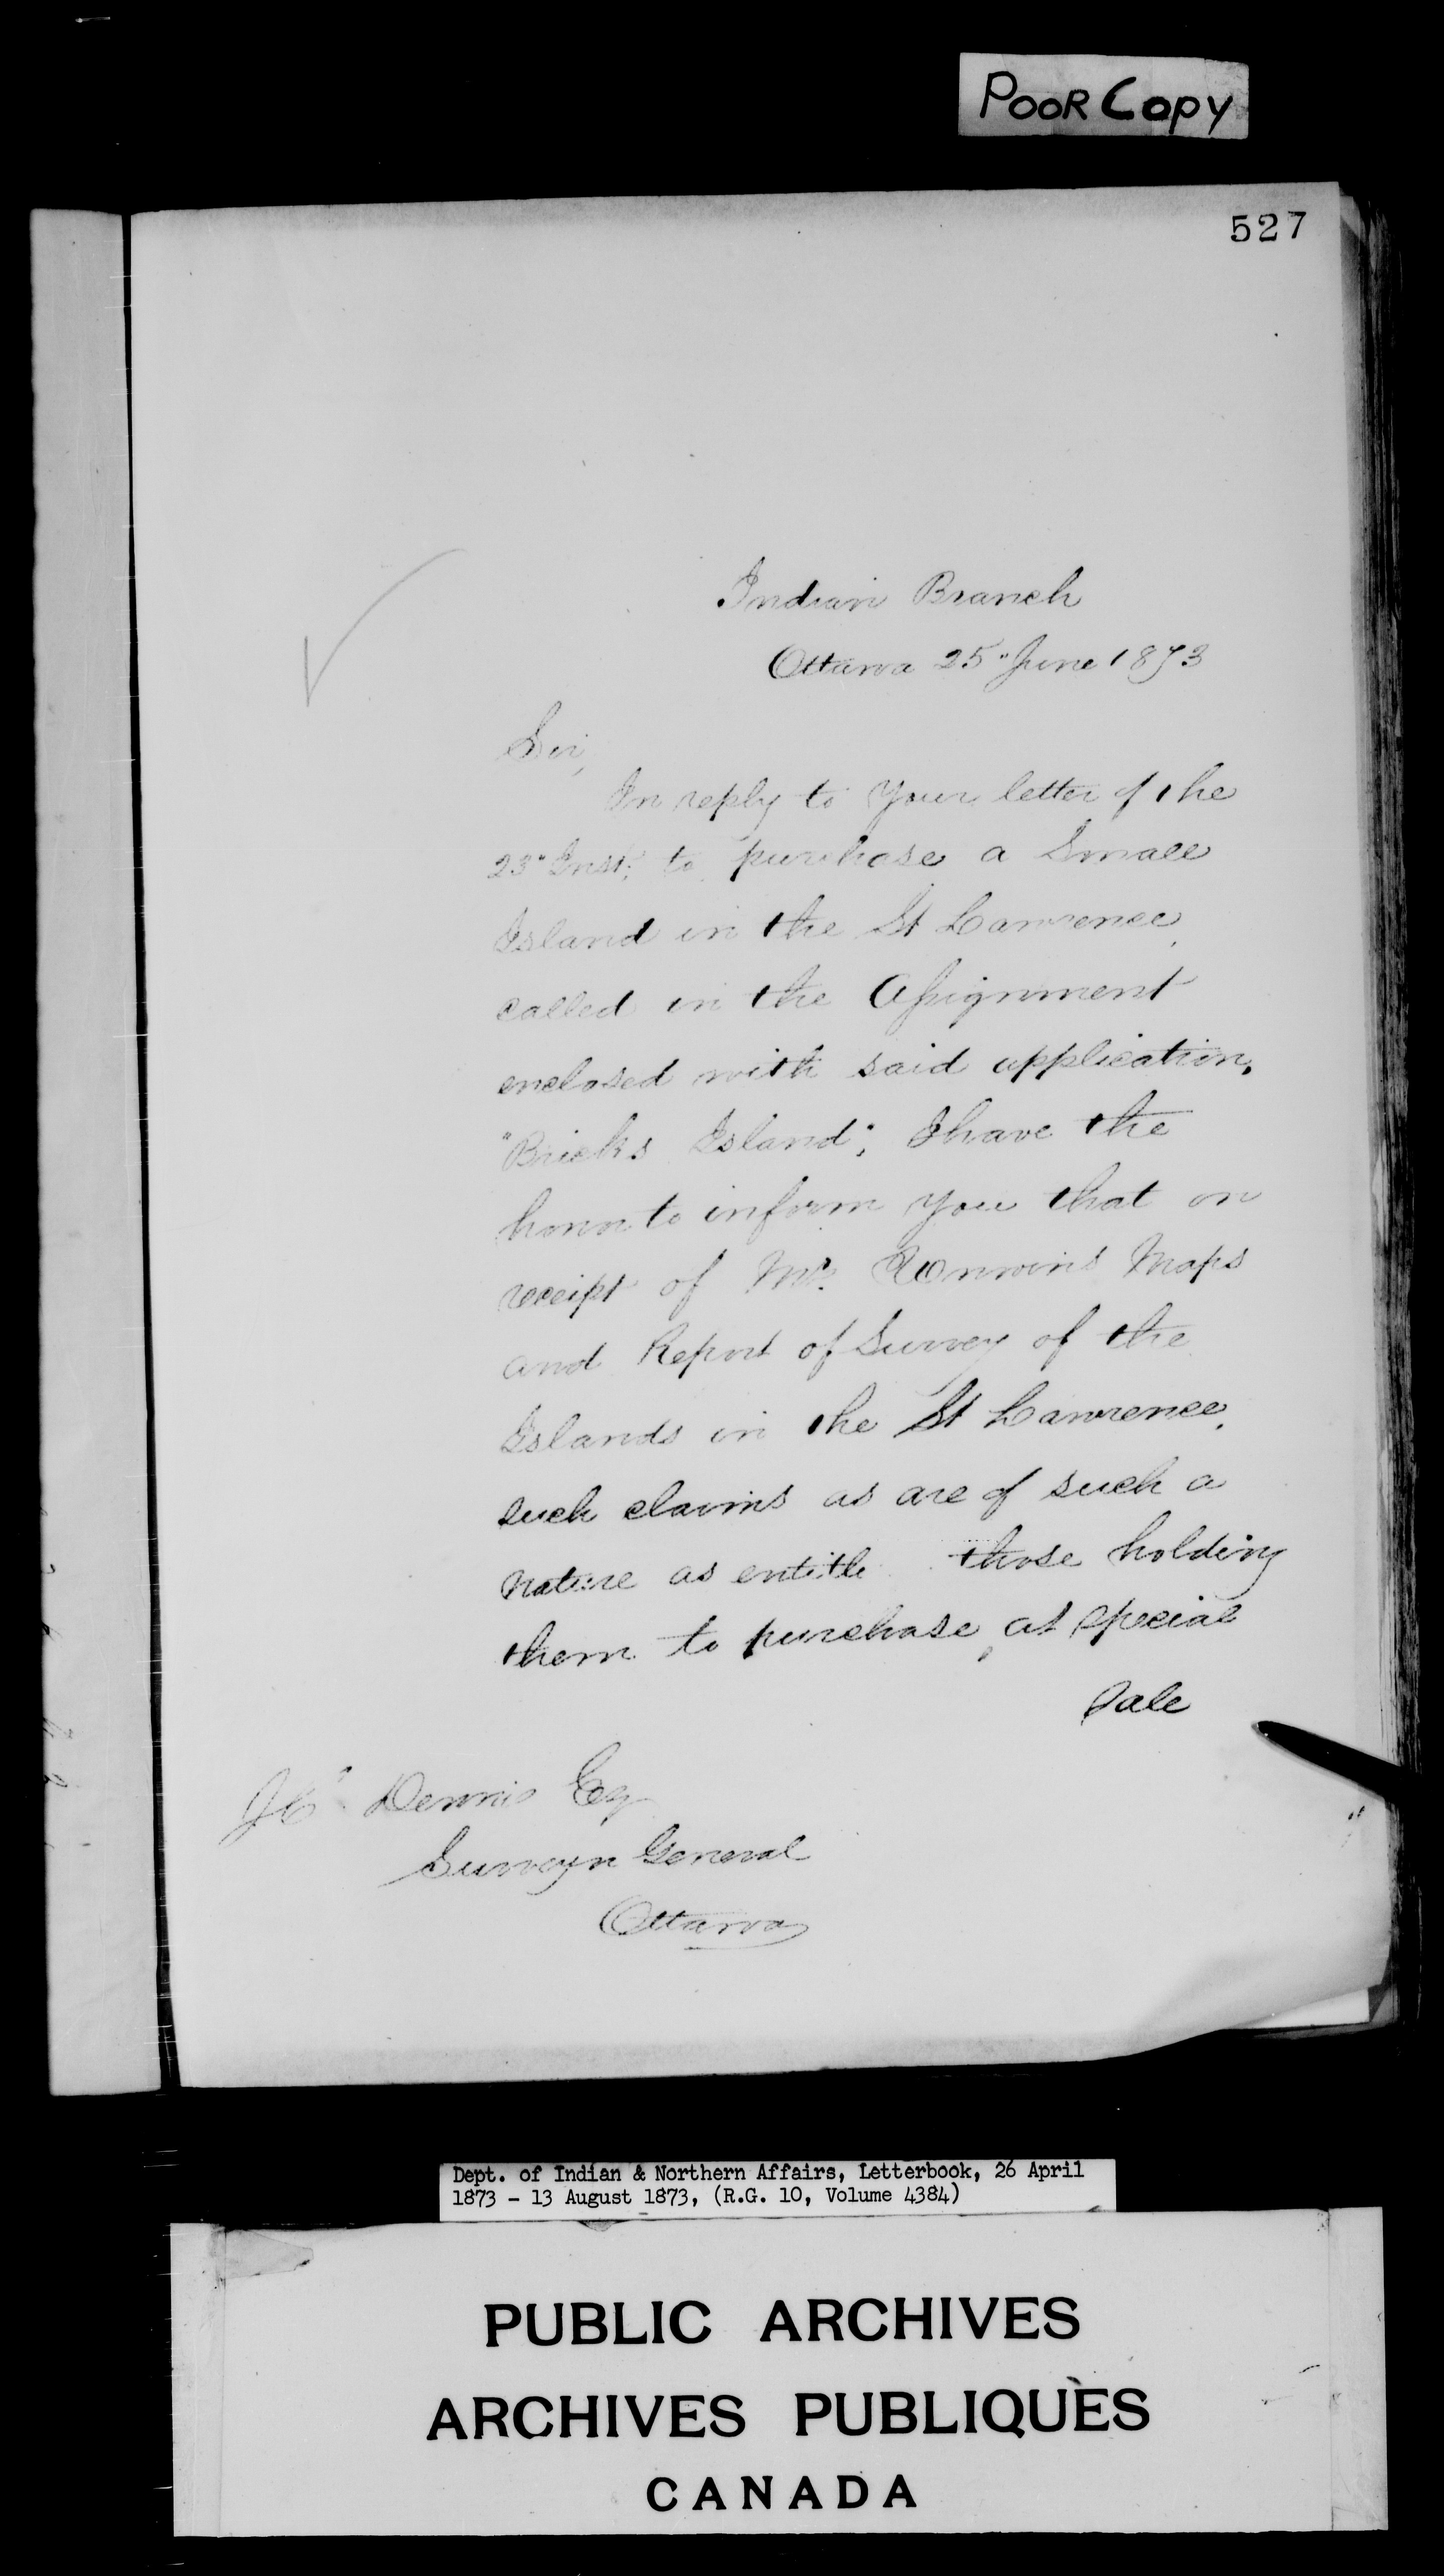 POOR COPY
527
Indian Branch
Ottawa 25" June 1873
Sir,
In reply to your letter of the
23" Inst, to purchase a Small
Island in the St Lawrence
called in the Assignment
enclosed with said application,
"Bricks Island"; I have the
honor to inform you that on
receipt of Mr. Unwins Maps
and Report of Survey of the
Islands in the St Lawrence,
such claims as are of such a
nature as entitle those holding
them to purchase, at special
Sale
Dennis Esq
Surveyor General
Ottawa
Dept. of Indian & Northern Affairs, Letterbook, 26 April
1873 - 13 August 1873, (R.G. 10, Volume 4384)
PUBLIC ARCHIVES
ARCHIVES PUBLIQUES
CANADA